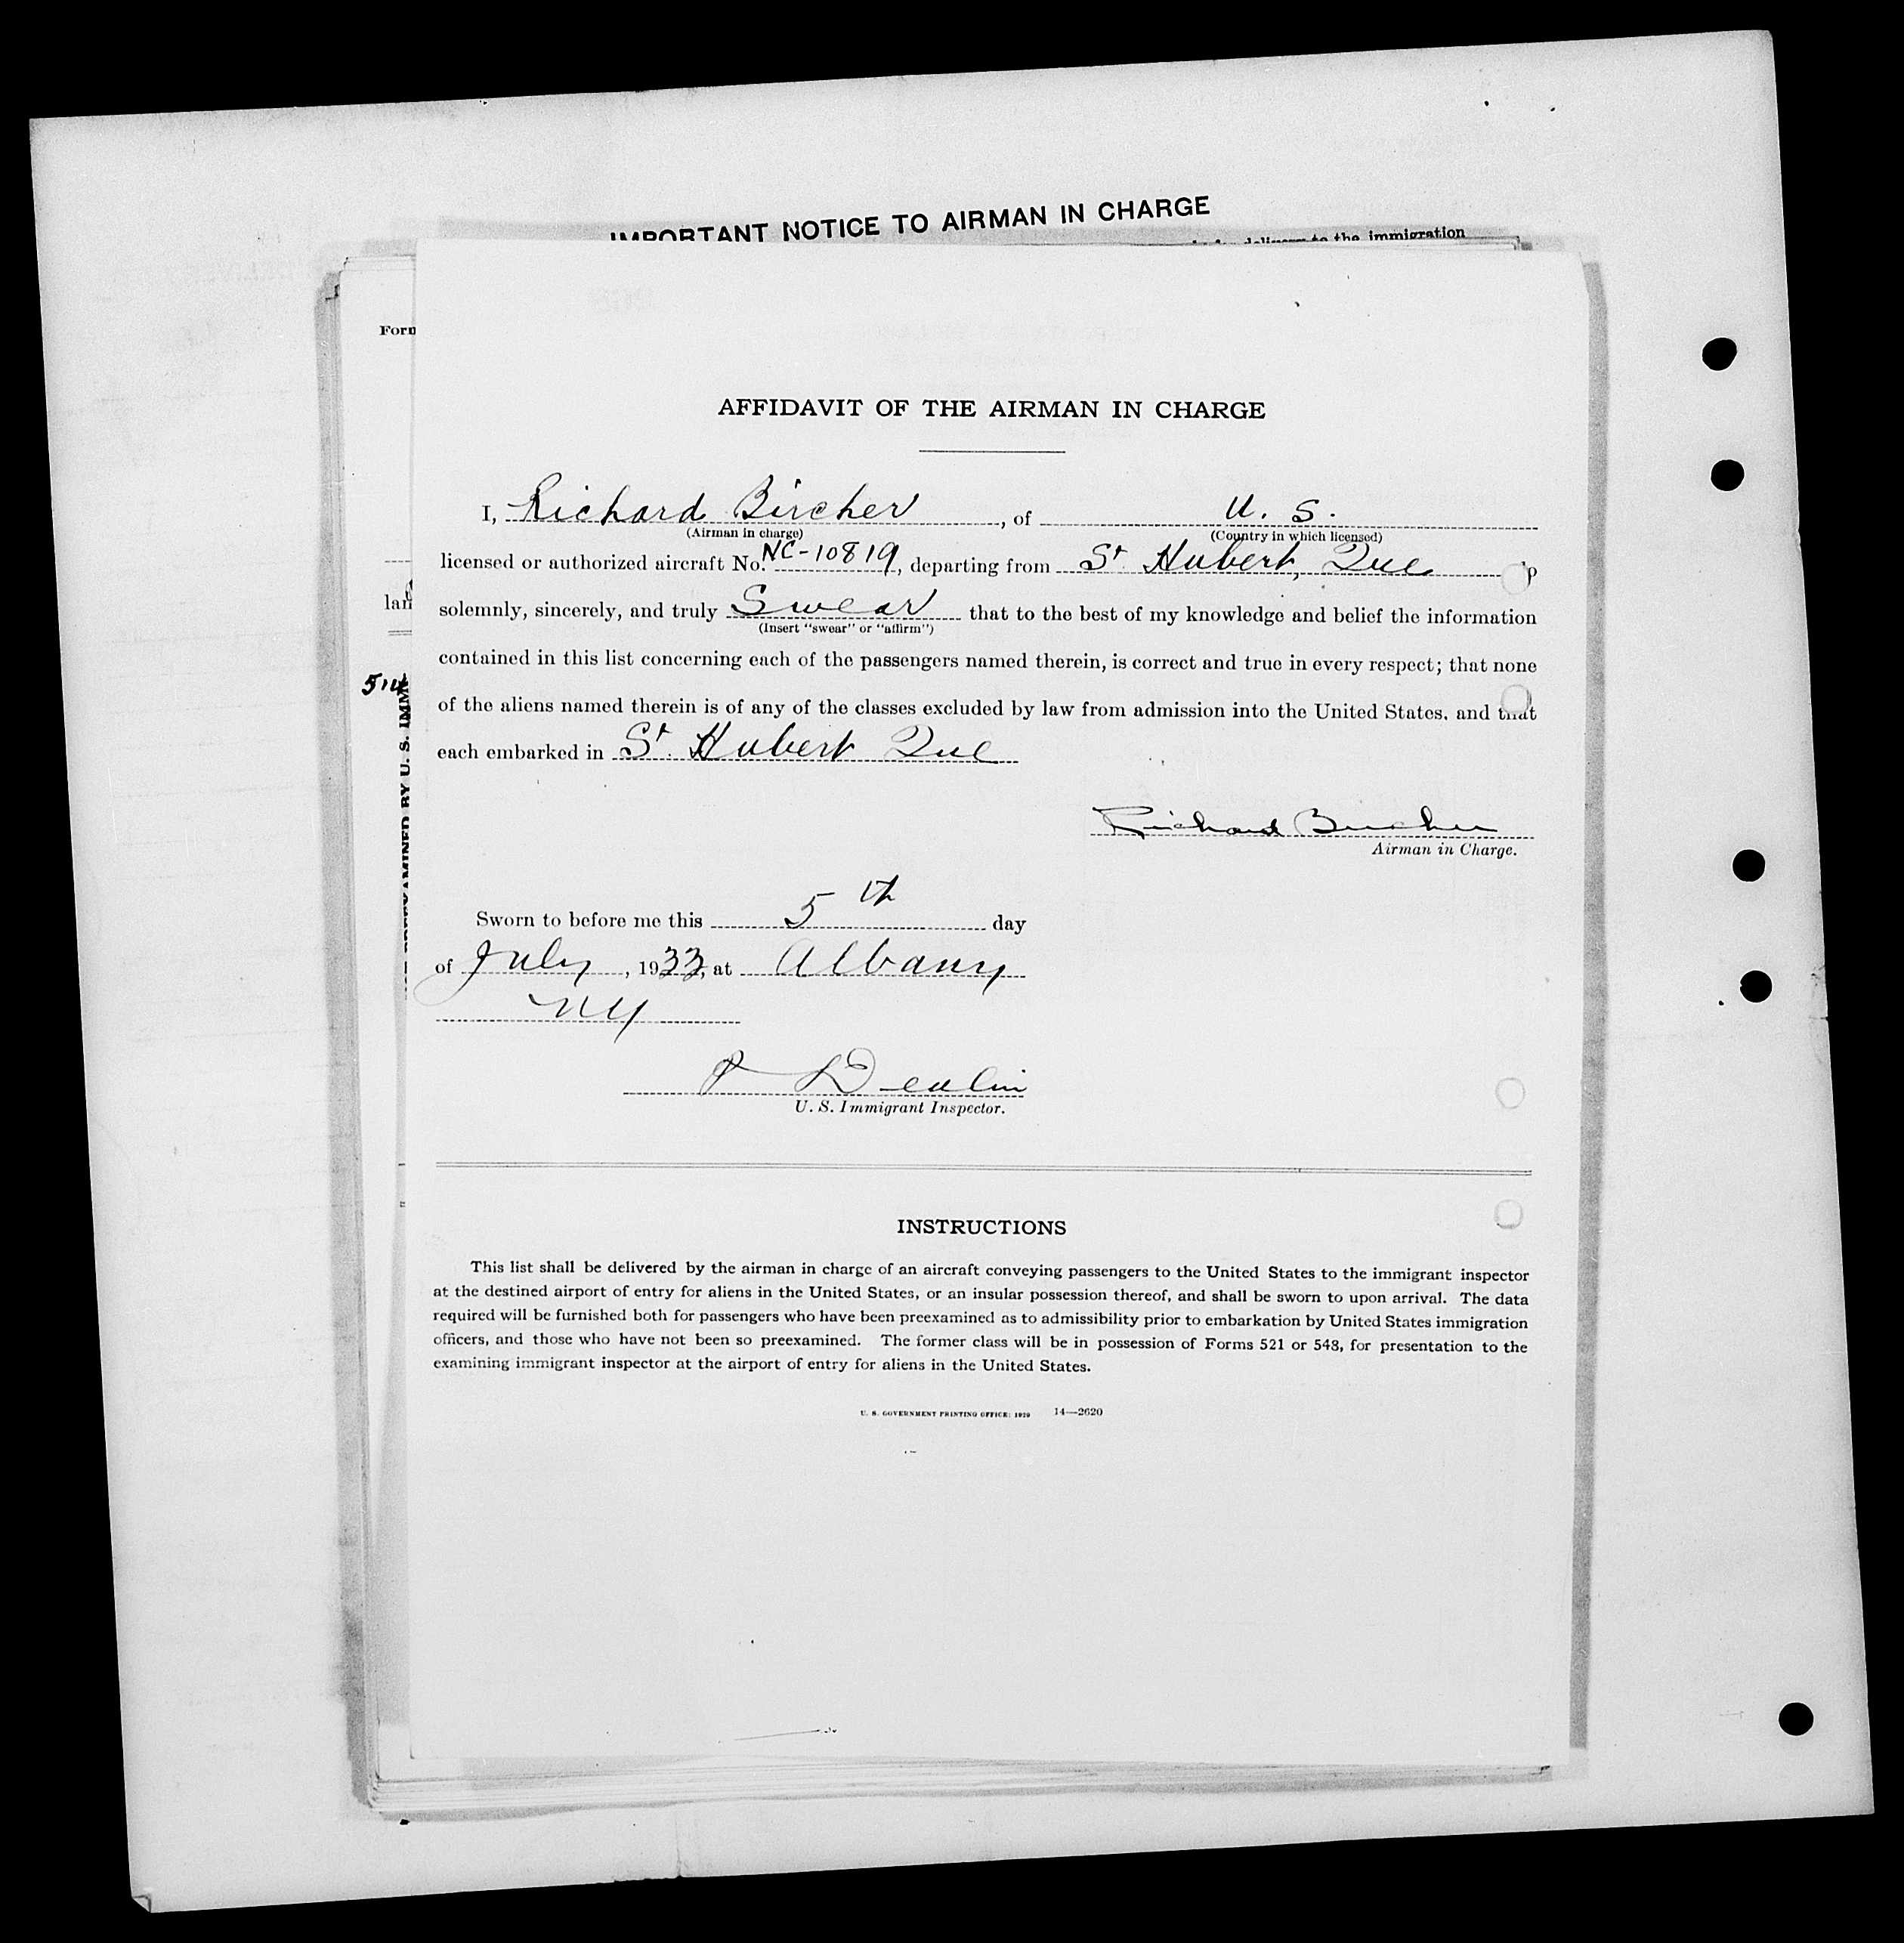 IMPORTANT NOTICE TO AIRMAN IN CHARGE
deliver to the immigration
Form
AFFIDAVIT OF THE AIRMAN IN CHARGE
I, Richard Bircher, of U. S.
(Airman in charge) (Country in which licensed)
licensed or authorized aircraft No. NC-10819, departing from St Hubert, Que
solemnly, sincerely, and truly Swear that to the best of my knowledge and belief the information
(Insert "swear" or "affirm")
contained in this list concerning each of the passengers named therein, is correct and true in every respect; that none
of the aliens named therein is of any of the classes excluded by law from admission into the United States, and that
each embarked in St. Hubert Que
Richard Bircher
Airman in Charge.
Sworn to before me this 5th day
of July, 1933, at Albany
NY
U. S. Immigrant Inspector.
INSTRUCTIONS
This list shall be delivered by the airman in charge of an aircraft conveying passengers to the United States to the immigrant inspector
at the destined airport of entry for aliens in the United States, or an insular possession thereof, and shall be sworn to upon arrival. The data
required will be furnished both for passengers who have been preexamined as to admissibility prior to embarkation by United States immigration
officers, and those who have not been so preexamined. The former class will be in possession of Forms 521 or 548, for presentation to the
examining immigrant inspector at the airport of entry for aliens in the United States.
U. S. GOVERNMENT PRINTING OFFICE: 1929 14—2620
lan
EXAMINED BY U. S. IMM